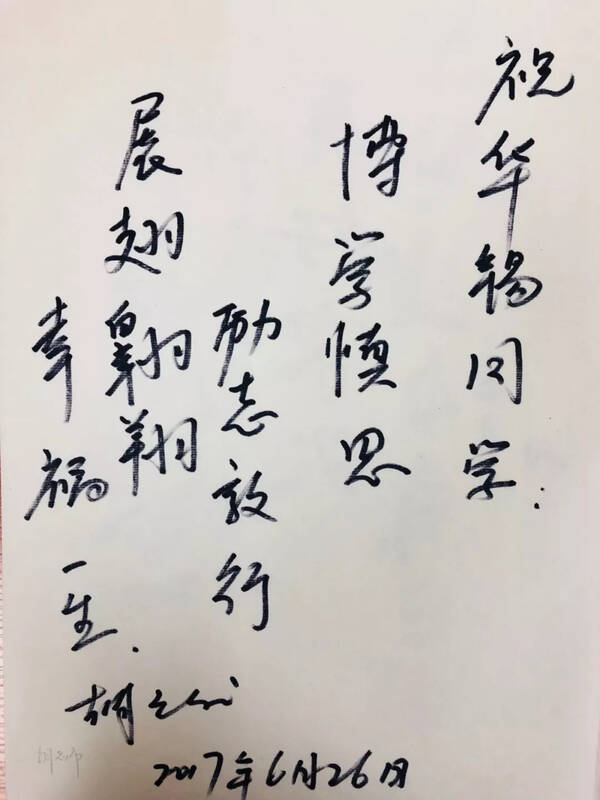 祝华锡同学:
博学慎思
励志敦行
展翅翱翔
幸福一生.
胡
2017年6月26日